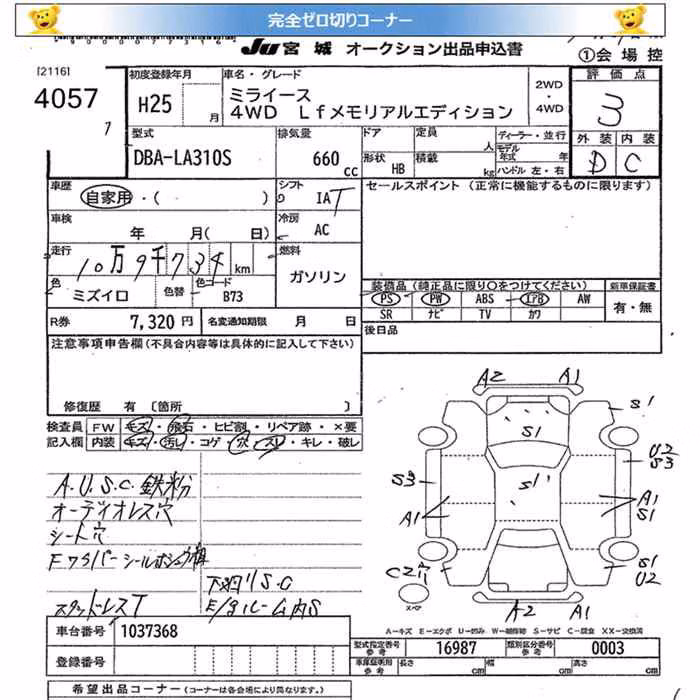 完全ゼロ切りコーナー
JU 宮城 オークション出品申込書
①会場控
[2116]
4057
初度登録年月
H25 月
車名・グレード
ミライース
4WD LfメモリアルエディションN
2WD・4WD
評価点
3
外装 内装
D C
型式
DBA-LA310S
排気量
660 cc
ドア
形状 HB
定員 人
積載 kg
ディーラー・並行
モデル年式 年
ハンドル 左・右
車歴
自家用・( )
シフト
IAT
セールスポイント (正常に機能するものに限ります)
車検
年 月( 日)
冷房
AC
走行
10万9千734 km
燃料
ガソリン
色
ミズイロ
色替
色コード
B73
装備品 (純正品に限り○をつけてください)
新車保証書
PS PW ABS エアB AW
有・無
SR ナビ TV カワ
R券 7,320円
名変通知期限 月 日
後日品
注意事項申告欄(不具合内容等は具体的に記入して下さい)
修復歴 有 〔箇所 〕
検査員 FW キズ・飛石・ヒビ割・リペア跡・×要
記入欄 内装 キズ・汚レ・コゲ・穴・スレ・キレ・破レ
A.U.S.C.鉄粉
オーディオレス穴
シート穴
下廻りS.C
スタッドレスT
E/gルーム内S
A2 A1
S1
S1
U2
S3
S3
S1
A1
A1
S1
S1
U2
C2穴
スペア
A2 A1
A-キズ E-エクボ U-凹み W-補修跡 S-サビ C-腐食 XX-交換済
車台番号 1037368
型式指定番号 参考 16987
類別区分番号 参考 0003
登録番号
車庫証明用 参考 長さ cm 幅 cm 高さ cm
希望出品コーナー (コーナーは各会場により異なります。)